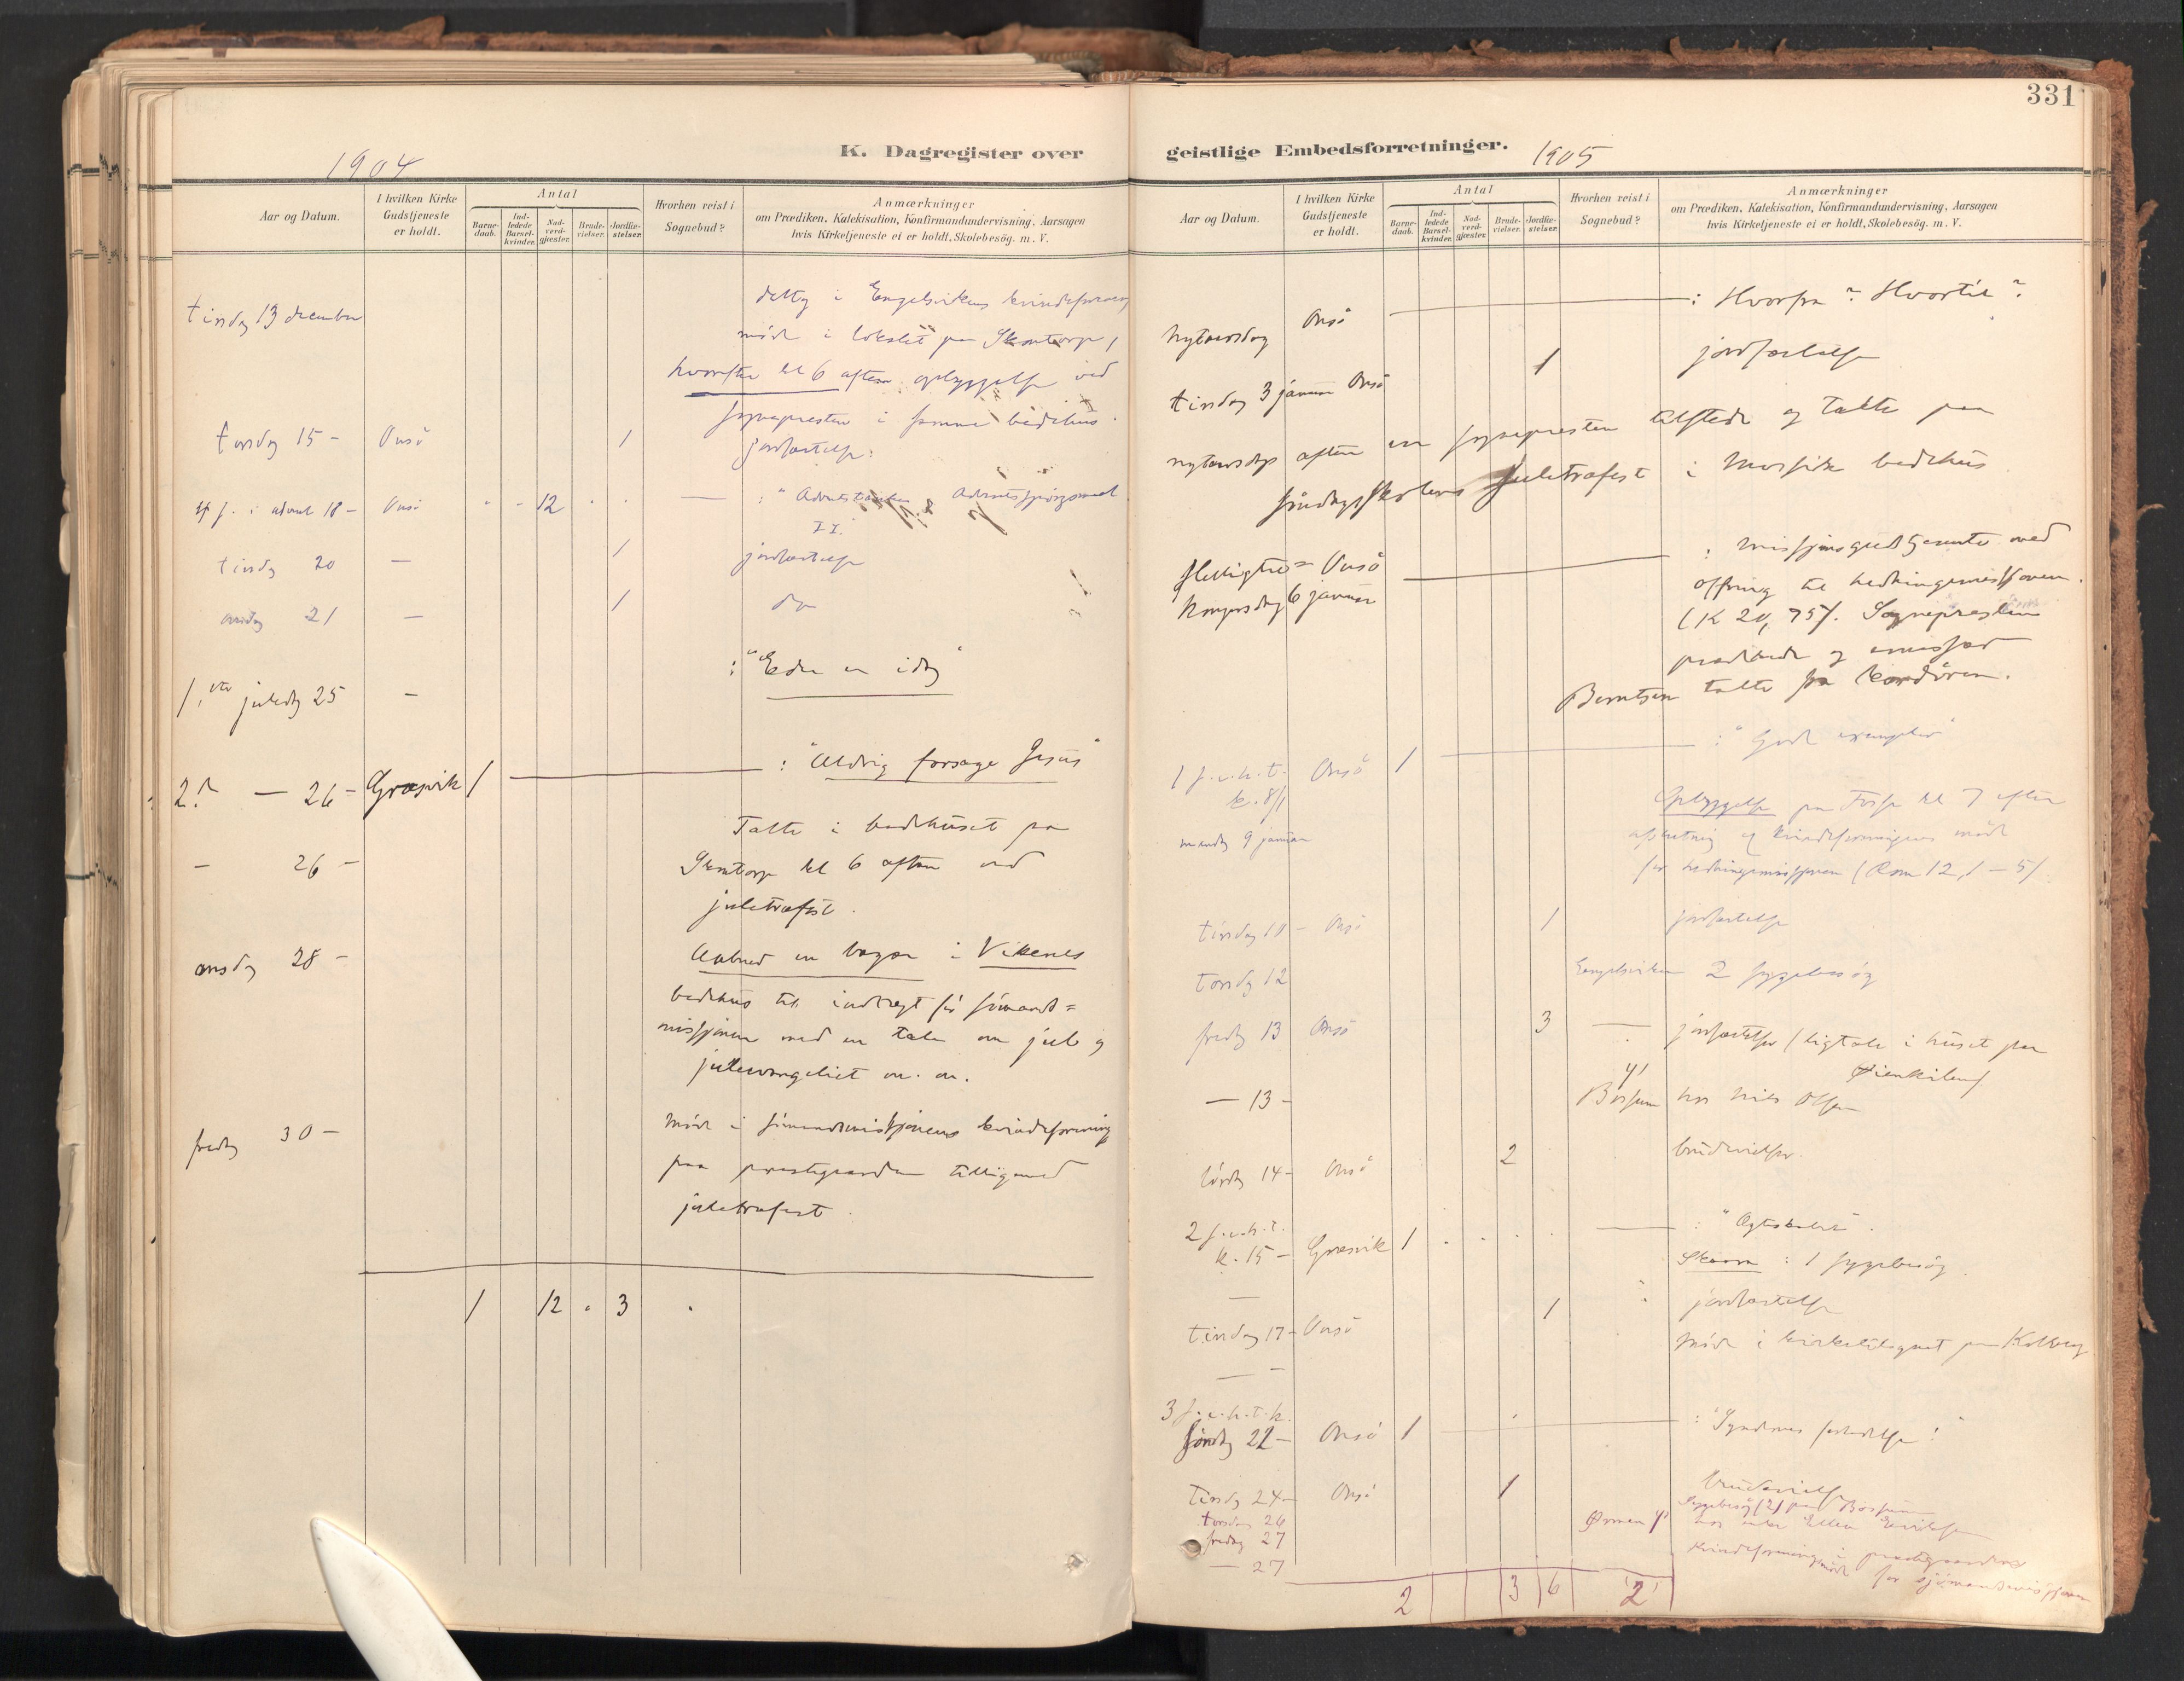 K. Dagregister over
1904
Aar og Datum.
I hvilken Kirke Gudstjeneste er holdt.
Antal
Barne-daab.
Ind-ledede Barsel-kvinder.
Nad-verd-gjæster.
Brude-vielser.
Jordfæ-stelser.
Hvorhen reist i Sognebud?
Anmærkninger
om Prædiken, Katekisation, Konfirmandundervisning, Aarsagen
hvis Kirketjeneste ei er holdt, Skolebesög. m. V.
tirsdag 13 december deltog i Engelsvikens kvindeforening
möde i lokalet paa Skomtorp,
hvorefter kl 6 aften opbyggelse ved
sogneprestens i samme bedehus.
torsdag 15 - Onsö 1 jordfæstelse.
4 s. i advent 18 - Onsö 12 : "Advents Adventsspörgsmaal
II."
tirsdag 20 — 1 jordfæstelse
onsdag 21 — 1 do
1ste juledag 25 - : "Eder er idag"
2. — 26 - Græsvik 1 : "Aldrig forsage Jesus"
- 26 - Talte i bedehuset paa
Skomtorp kl 6 aften ved
juletræfest.
onsdag 28 - Aabned en bazar i Vikenes
bedehus til indtægt for sömands=
missjonen med en tale om jul og
juleevangeliet m. m.
fredag 30 - Möde i sömandsmissjonens kvindeforening
paa prestegaarden tilligemed
juletræfest.
1 12 . 3 .
331
geistlige Embedsforretninger.
1905
Aar og Datum.
I hvilken Kirke Gudstjeneste er holdt.
Antal
Barne-daab.
Ind-ledede Barsel-kvinder.
Nad-verd-gjæster.
Brude-vielser.
Jordfæ-stelser.
Hvorhen reist i Sognebud?
Anmærkninger
om Prædiken, Katekisation, Konfirmandundervisning, Aarsagen
hvis Kirketjeneste ei er holdt, Skolebesög. m. V.
Nytaarsdag Onsö : Hvorfra? Hvortil?
tirsdag 3 januar Onsö 1 jordfæstelse
nytaarsdags aften var sognepresten tilstede og talte paa
söndagsskolens juletræfest i Mossik bedehus
Helligtre= Onsö : missjonsgudstjeneste med
kongersdag 6 januar offring til hedningemissjonen.
(K 20,75). Sognepresten
prædikede og emissær
Berntsen talte fra kordören.
1 s. e. h. t. k. 8/1 Onsö 1 : "Gode exempler"
mandag 9 januar Opbyggelse paa Fosse kl 7 efter
afslutning af kvindeforeningens möde
for hedningemissjonen (Rom 12,1-5)
tirsdag 10 - Onsö 1 jordfæstelse
torsdag 12 Engelsviken 2 sygebesög
fredag 13 Onsö 3 — jordfæstelser (ligtale i huset paa
Øienkilen)
— 13 - Bossum hos Nils Olsen
lördag 14 - Onsö 2 brudevielser.
2 s. e. h. t. k. 15 - Græsvik 1 : "Ægteskabet".
— Skaara : 1 sygebesög.
tirsdag 17 - Onsö 1 jordfæstelse
— Möde i kirketilsynet paa Kolberg
3 s. e. h. t. k.
söndag 22 - Onsö 1 : "Syndernes forladelse!"
Tirsdag 24 - Onsö 1 brudevielse
torsdag 26 Sygebesög (2) paa Bossum
fredag 27 hos enke Ellen
— 27 Kvindeforeningsmöde i prestegaarden
for sjömandsmissjonen
2 3 6 2